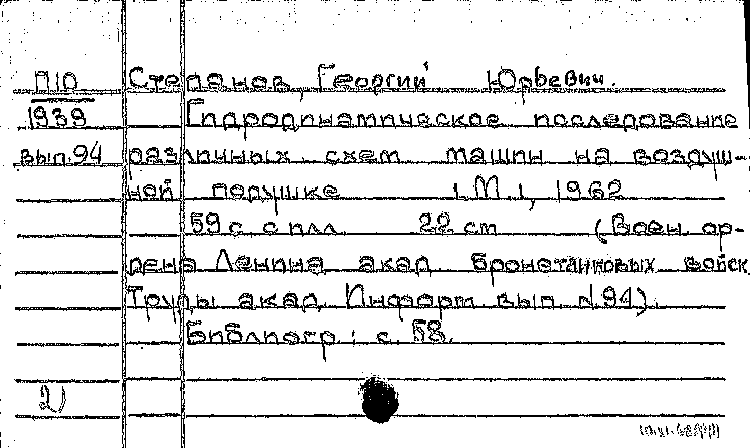 П10 Степанов, Георгий Юрьевич.
1939 Гидродинамическое исследование
вып.94 различных схем машин на воздуш-
ной подушке М., 1962
59 с. с илл. 22 см (Воен. ор-
дена Ленина акад. бронетанковых войск
Труды акад. Информ. вып. N.94).
Библиогр.: с. 58.
2)